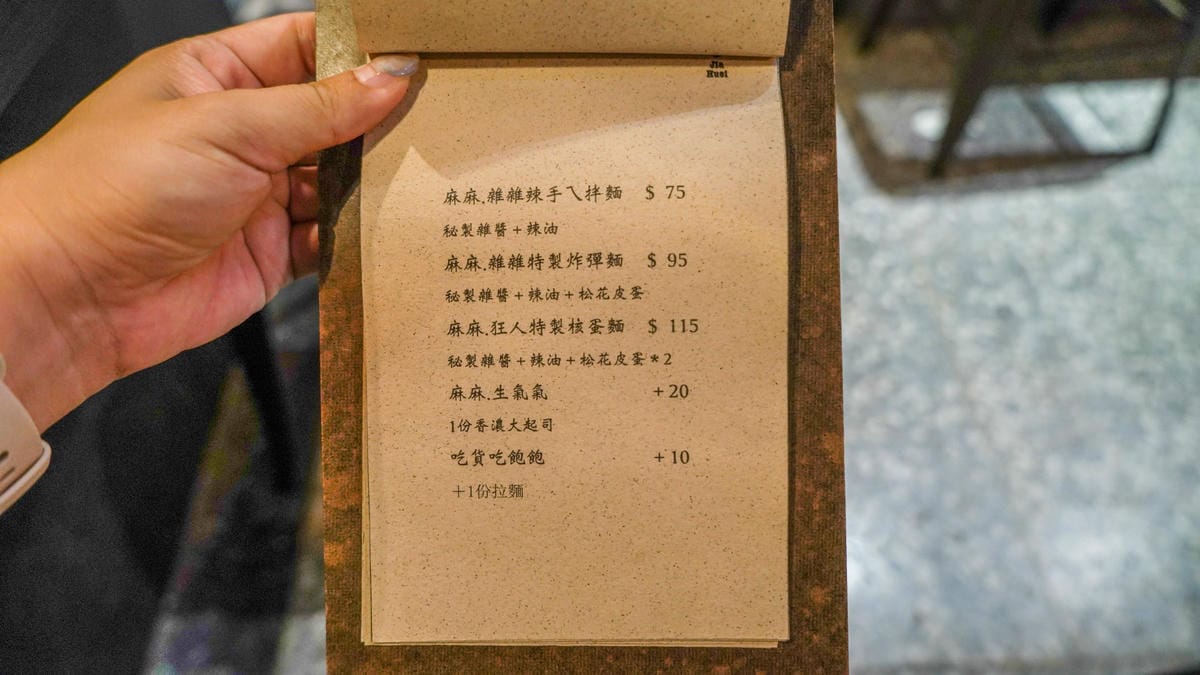 Jia
Huei
麻麻.雜雜辣手ㄟ拌麵 $ 75
秘製雜醬+辣油
麻麻.雜雜特製炸彈麵 $ 95
秘製雜醬+辣油+松花皮蛋
麻麻.狂人特製核蛋麵 $ 115
秘製雜醬+辣油+松花皮蛋*2
麻麻.生氣氣 +20
1份香濃大起司
吃貨吃飽飽 +10
+1份拉麵